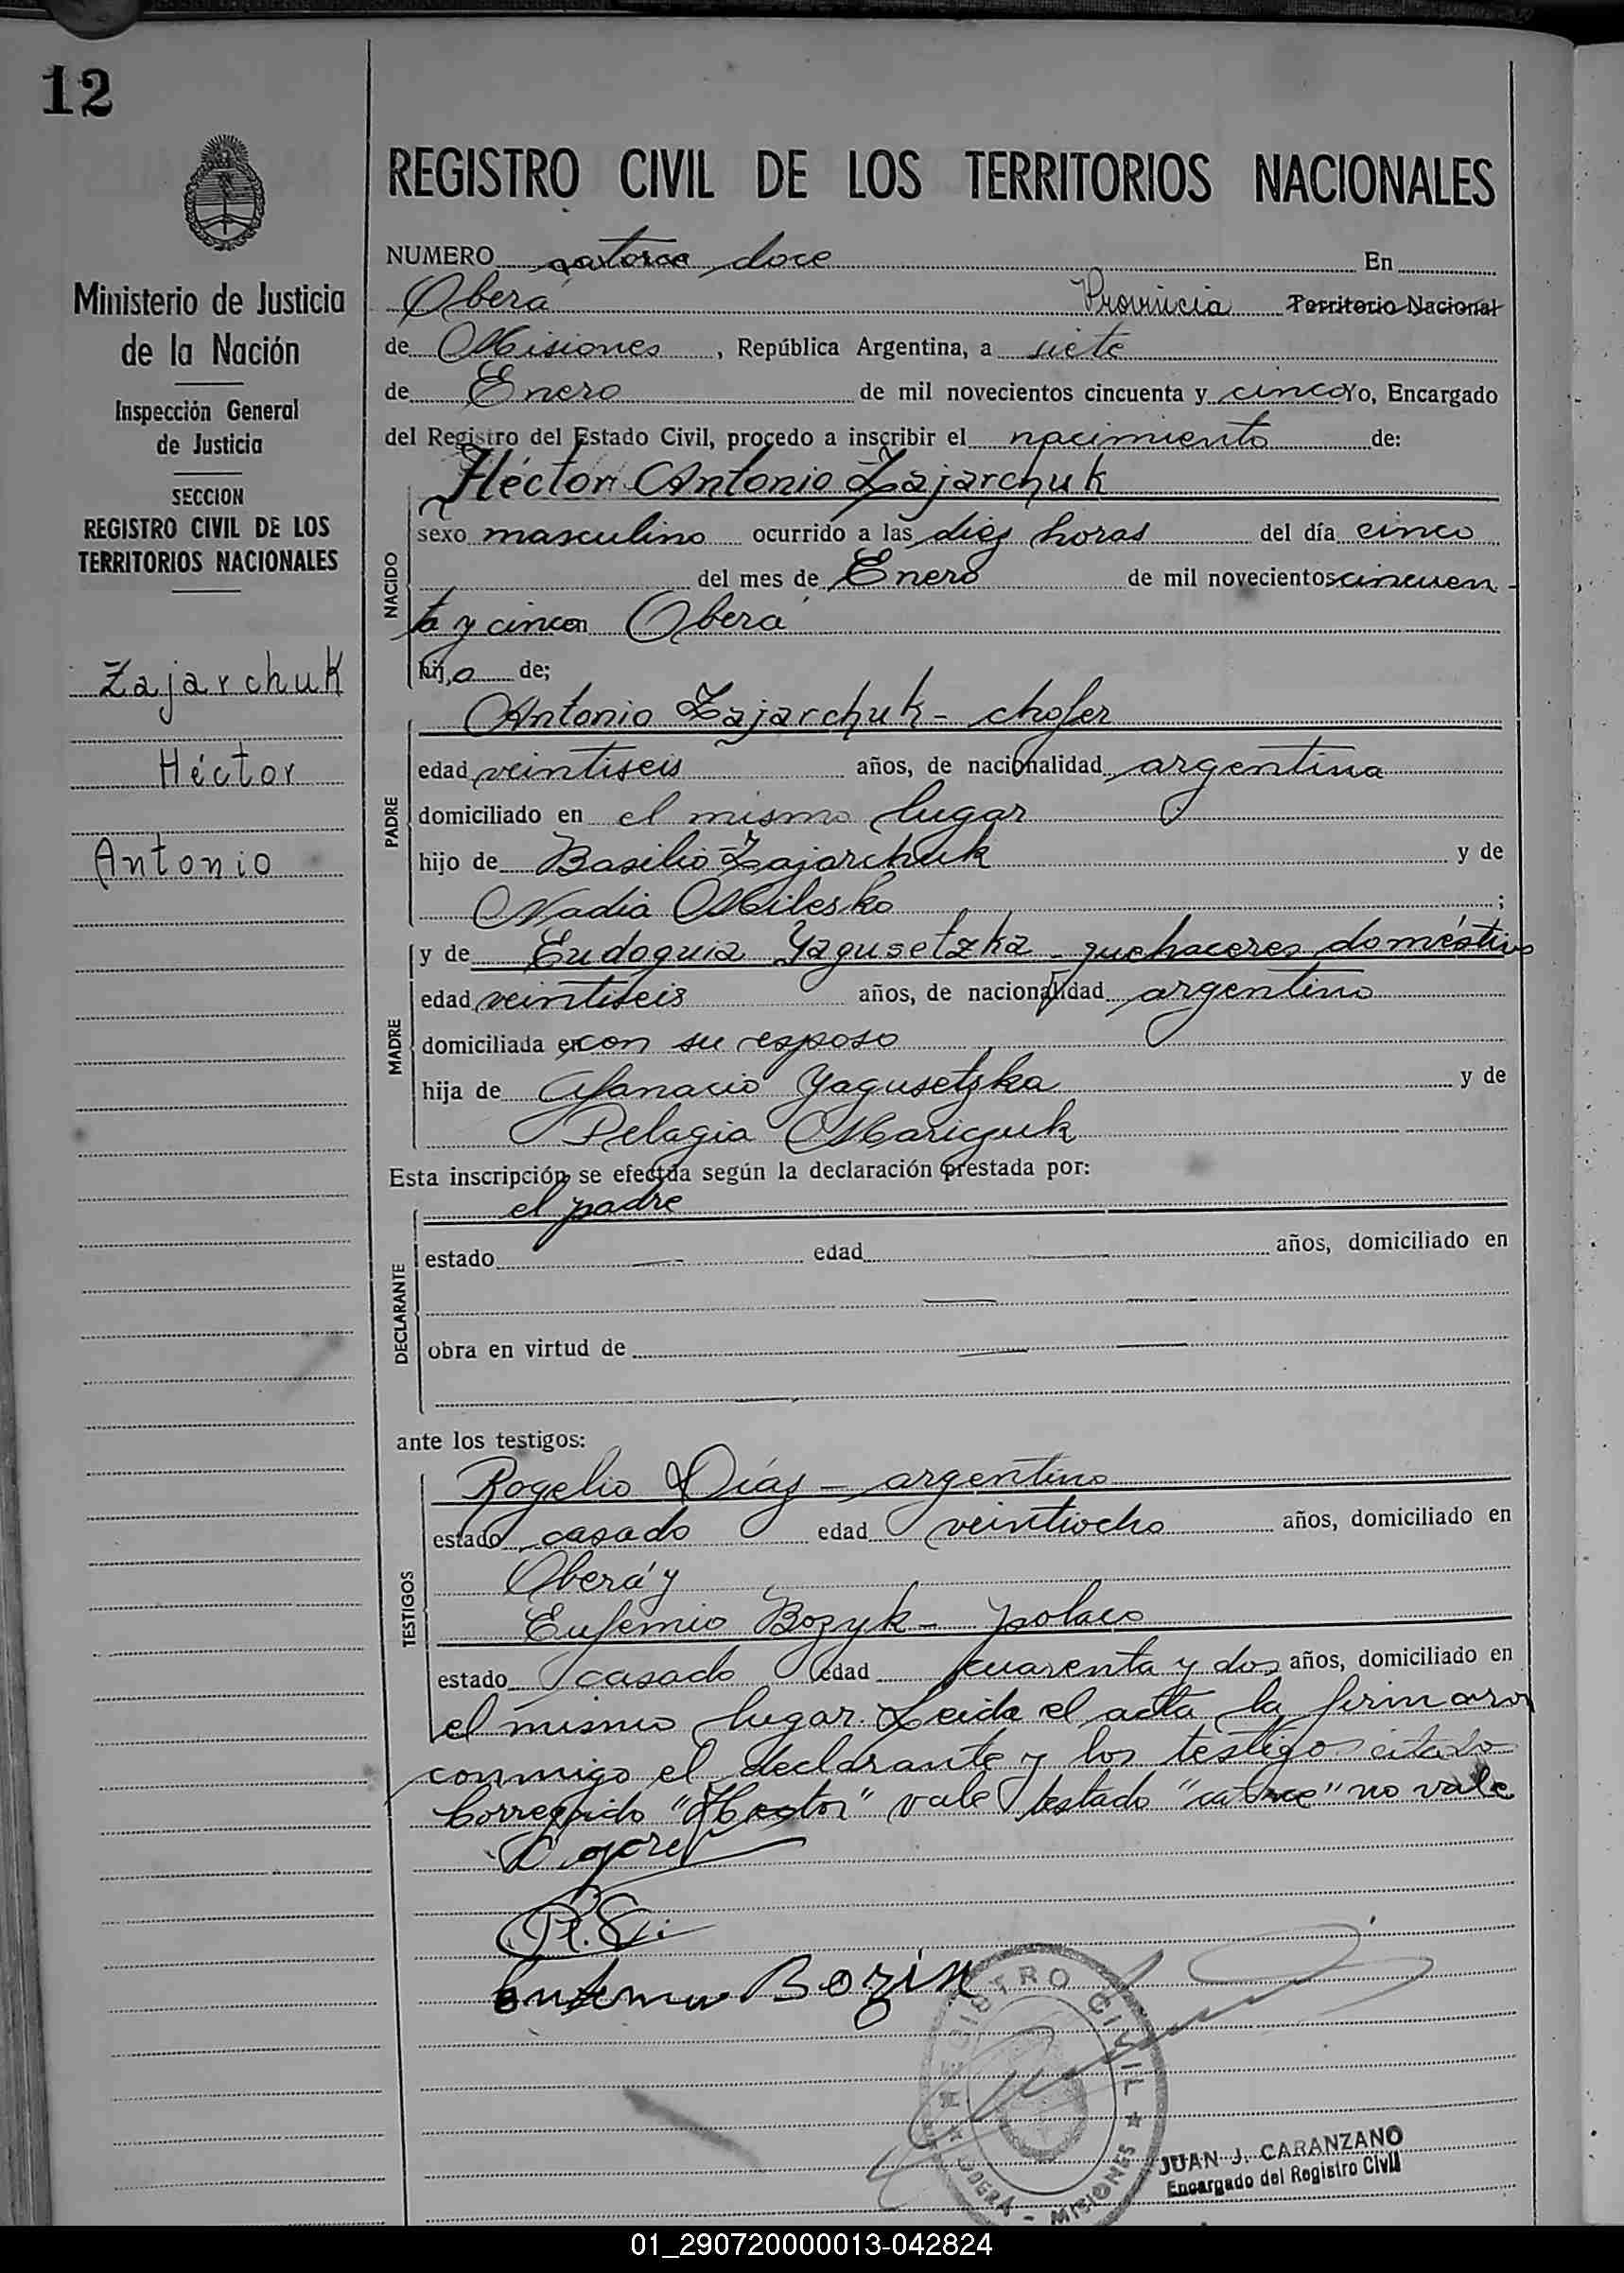 12
REGISTRO CIVIL DE LOS TERRITORIOS NACIONALES
Ministerio de Justicia
de la Nación
Inspección General
de Justicia
SECCION
REGISTRO CIVIL DE LOS
TERRITORIOS NACIONALES
Zajarchuk
Héctor
Antonio
NUMERO catorce doce En
Oberá Provincia Territorio Nacional
de Misiones, República Argentina, a siete
de Enero de mil novecientos cincuenta y cinco Yo, Encargado
del Registro del Estado Civil, procedo a inscribir el nacimiento de:
Héctor Antonio Zajarchuk
NACIDO
sexo masculino ocurrido a las diez horas del día cinco
del mes de Enero de mil novecientos cincuen-
ta y cinco en Oberá
hijo de;
Antonio Zajarchuk - chofer
PADRE
edad veintiseis años, de nacionalidad argentina
domiciliado en el mismo lugar
hijo de Basilio Zajarchuk y de
Nadia Milesko;
MADRE
y de Eudoquia Yagusetzka - quehaceres domésticos
edad veintiseis años, de nacionalidad argentina
domiciliada en con su esposo
hija de Afanacio Yagusetzka y de
Pelagia Mariczuk
Esta inscripción se efectúa según la declaración prestada por:
el padre
DECLARANTE
estado — edad — años, domiciliado en
— —
obra en virtud de — —
—
ante los testigos:
TESTIGOS
Rogelio Díaz - argentino
estado casado edad veintiocho años, domiciliado en
Oberá y
Eufemio Bozyk - polaco
estado casado edad cuarenta y dos años, domiciliado en
el mismo lugar. Leida el acta la firmaron
conmigo el declarante y los testigos citados
Corregido "Hector" vale testado "catorce" no vale
R. D.
Eufemio Bozik
REGISTRO CIVIL
OBERA - MISIONES
JUAN J. CARANZANO
Encargado del Registro Civil
01_290720000013-042824